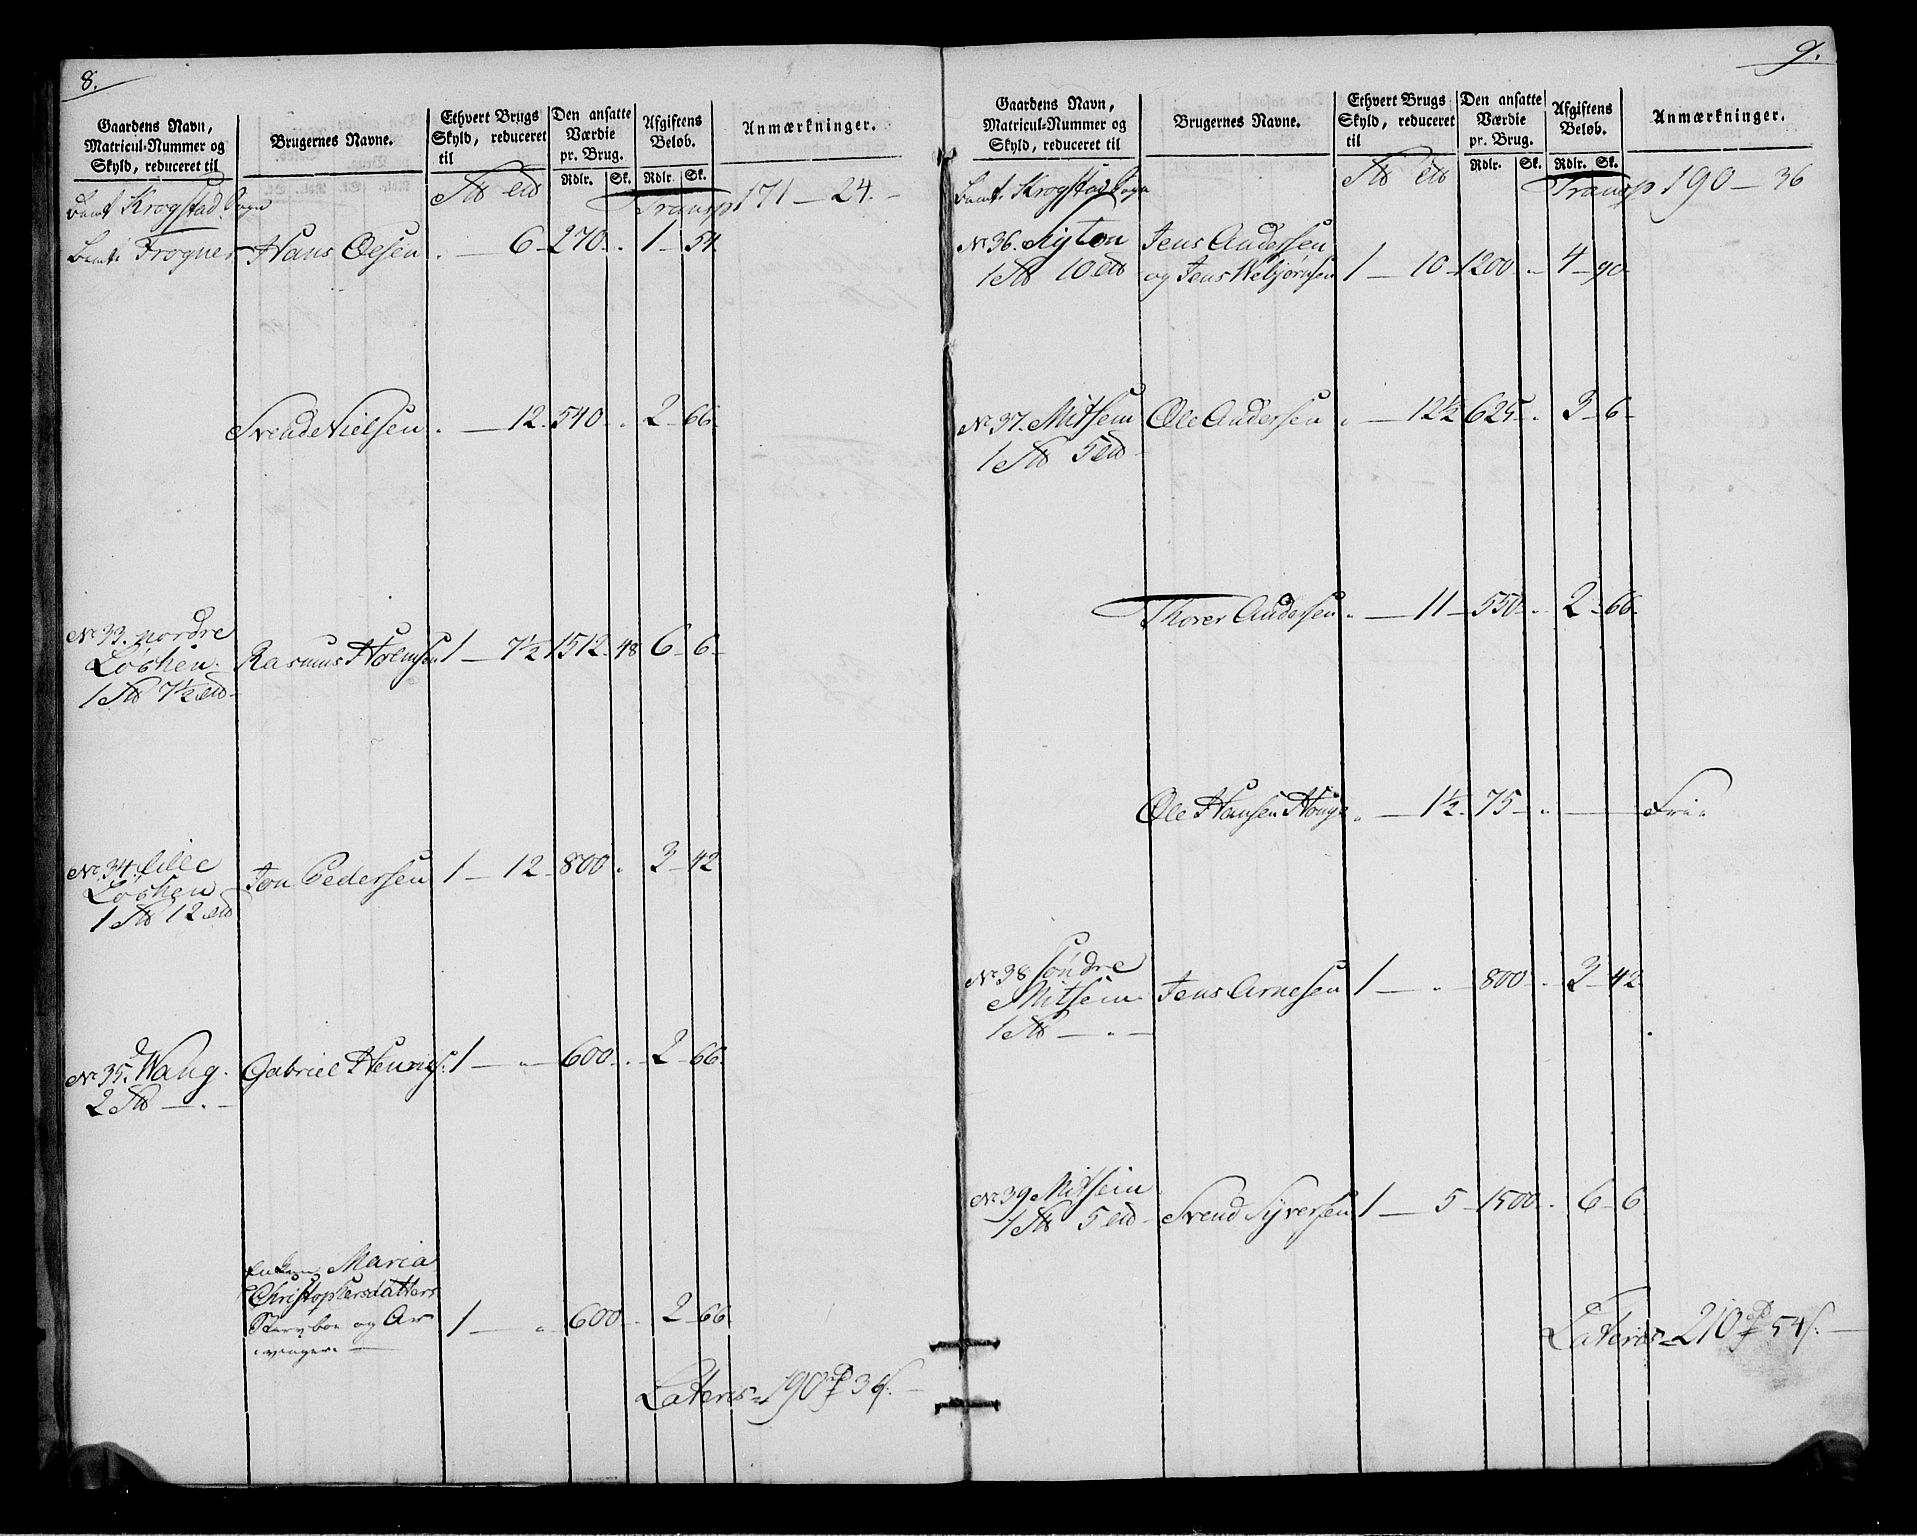 8.
Gaardens Navn, Matricul-Nummer og Skyld, reduceret til
Brugernes Navne.
Ethvert Brugs Skyld, reduceret til
Den ansatte Værdie pr. Brug.
Rdlr. Sk.
Afgiftens Beløb.
Rdlr. Sk.
Anmærkninger.
Krogstad Sogn
Transp 171 — 24.
Frogner Hans Olesen . — 6 — 270 . . 1 — 54
Svend Nielsen . — 12 . 540 . . 2 — 66.
No 33. nordre
Løshen. Rasmus Holemsen 1 — 7½ 1512 — 48 6 — 6 —
1 7½
No 34. Lille
Løshen Jon Pedersen 1 — 12 — 800 . 3 — 42
1 12
No 35. Wang. Gabriel Hennigs. 1 — " — 600 . . 2 — 66.
2 — " —
Enken Maria
Christophersdatters
Stervboe og Ar
vinger. — 1 — " 600 . . 2 — 66
Lateris 190 36
9.
Gaardens Navn, Matricul-Nummer og Skyld, reduceret til
Brugernes Navne.
Ethvert Brugs Skyld, reduceret til
Den ansatte Værdie pr. Brug.
Rdlr. Sk.
Afgiftens Beløb.
Rdlr. Sk.
Anmærkninger.
Krogstad Sogn
Transp 190 — 36
No 36. Jens Andersen
1 10 og Jens Webjørnsen 1 — 10 — 1200 . . 4 — 90.
No 37. Mitsem Ole Andersen . — 12½ 625 . . 3 — 6 —
1 5
Thorer Andersen . — 11 — 550 . . 2 — 66.
Ole Hansen Houge . — 1½ . 75 — . — Frie
No 38 Søndre
Mitsem. Jens Arnesen 1 — . — 800 . . 3 — 42.
1 — " —
No 39 Mitsem
1 5 Svend Syversen 1 — 5 — 1500 . . 6 — 6
Lateris 210 54